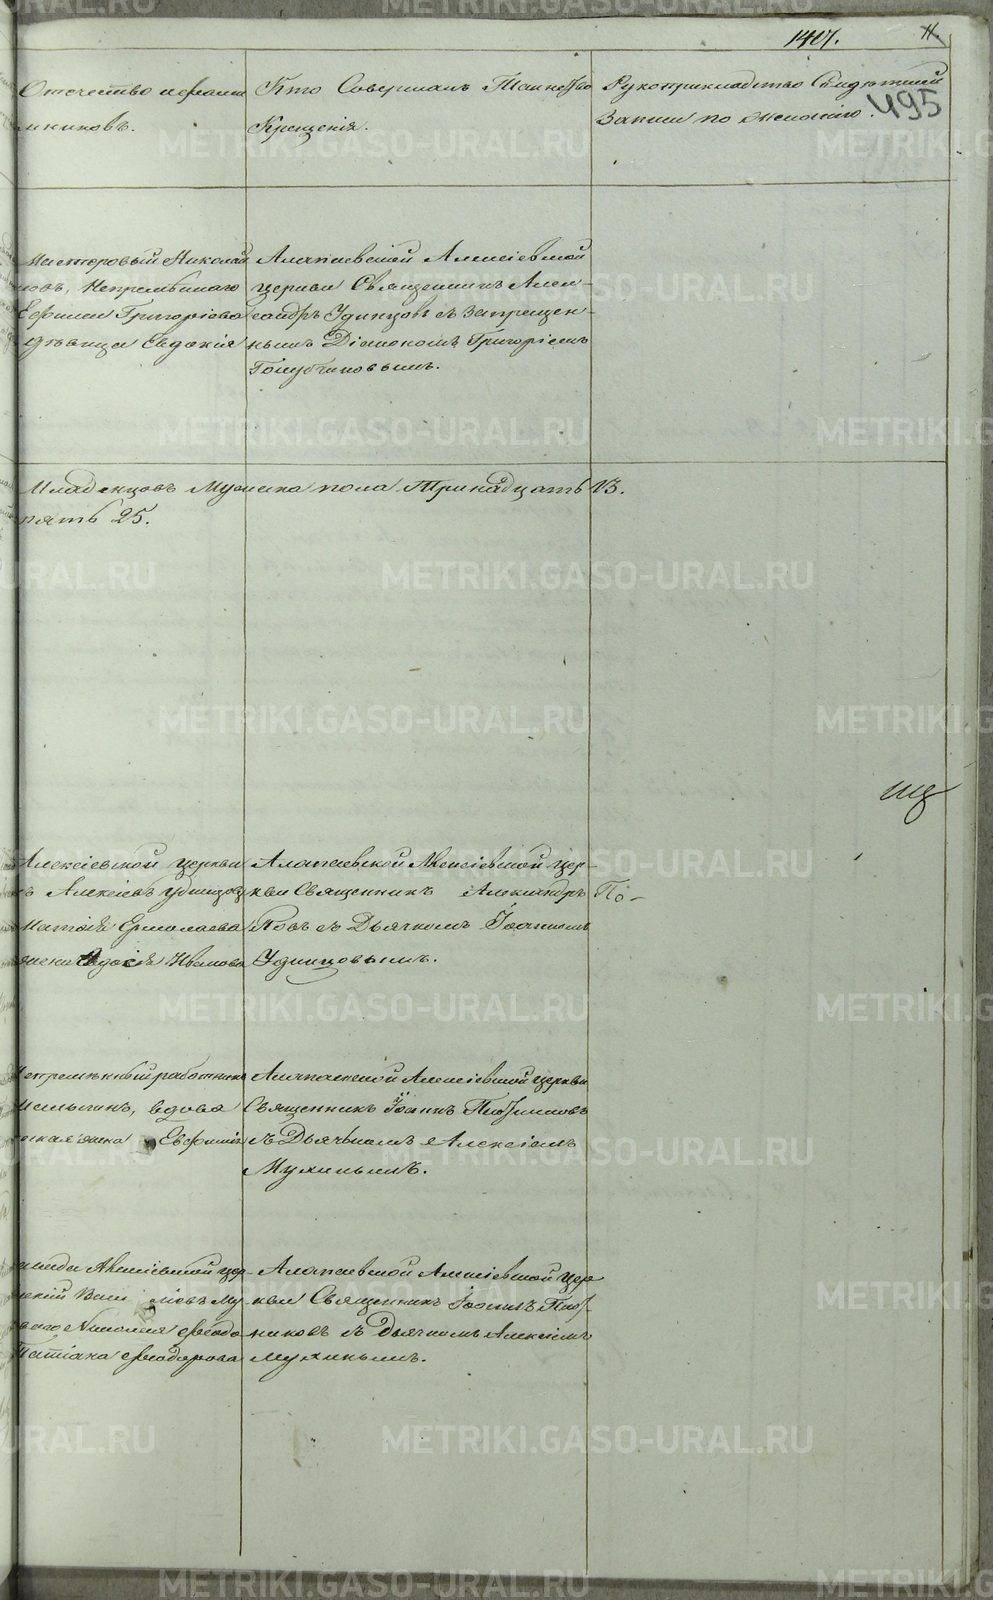 1407. 11.
495
Отчество и фамил
мниковъ.
Кто Совершалъ Таинство
Крещенія.
Рукоприкладство Свидѣтелей
Записи по желанію.
Мастеровый Николай
ковъ, Непремѣннаго
Ефимія Григорьева
дѣвица Евдокія
Алапаевской Алексіевской
церкви Священникъ Алек-
сандръ Удинцовъ съ Запрещен-
нымъ Діакономъ Григоріемъ
Голубчиковымъ.
Младенцовъ Мужеска пола Тринадцать 13.
пять 25.
Алексіевской церкви
ъ Алексіевъ Удинцовъ
Ермолаева
жена Иванова
Алапаевской Алексіевской цер-
кви Священникъ Александръ По-
повъ съ Дьячкомъ Іоанномъ
Удинцовымъ.
Непремѣнный работникъ
вдова
ская жена Евфимія
Алапаевской Алексіевской церкви
Священникъ Іоаннъ
съ Дьячкомъ Алексіемъ
Мухинымъ.
Алексіевской цер-
Му-
Николая Ѳеодо
Татіана Ѳеодорова
Алапаевской Алексіевской цер
кви Священникъ Іоаннъ
никовъ съ Дьячкомъ Алексіемъ
Мухинымъ.
METRIKI.GASO-URAL.RU